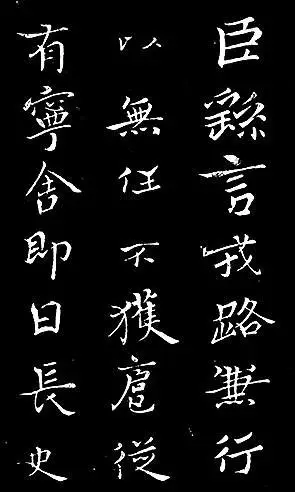 臣繇言戎路兼行
以無任不獲扈從
有寧舍即日長史